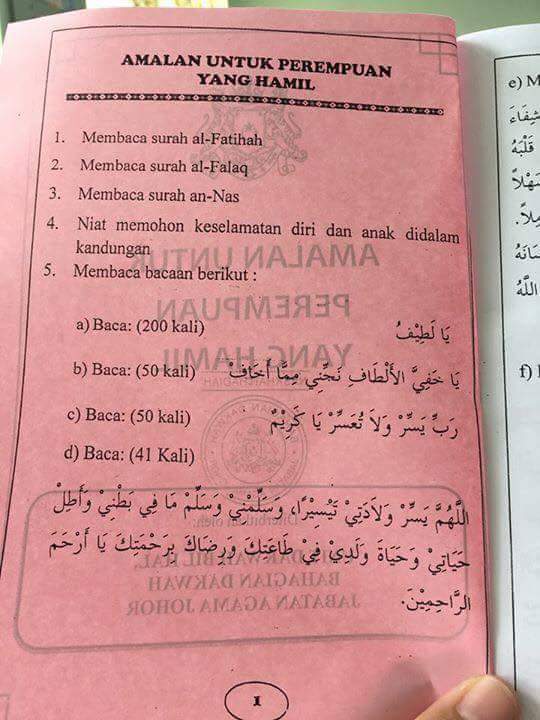 AMALAN UNTUK PEREMPUAN
YANG HAMIL
1. Membaca surah al-Fatihah
2. Membaca surah al-Falaq
3. Membaca surah an-Nas
4. Niat memohon keselamatan diri dan anak didalam
kandungan
5. Membaca bacaan berikut :
a) Baca: (200 kali) يَا لَطِيْفُ
b) Baca: (50 kali) يَا خَفِيَّ الأَلْطَافِ نَجِّنِي مِمَّا أَخَافُ
c) Baca: (50 kali) رَبِّ يَسِّرْ وَلاَ تُعَسِّرْ يَا كَرِيْمُ
d) Baca: (41 Kali)
اللَّهُمَّ يَسِّرْ وَلاَدَتِيْ تَيْسِيْرًا، وَسَلِّمْنِيْ وَسَلِّمْ مَا فِي بَطْنِيْ وَأَطِلْ
حَيَاتِيْ وَحَيَاةَ وَلَدِيْ فِيْ طَاعَتِكَ وَرِضَاكَ بِرَحْمَتِكَ يَا أَرْحَمَ
الرَّاحِمِيْنَ.
1
AMALAN UNTUK
PEREMPUAN
YANG HAMIL
BAHAGIAN DAKWAH
JABATAN AGAMA JOHOR
e) M
قَلْبَهُ
اللَّهُ
f)